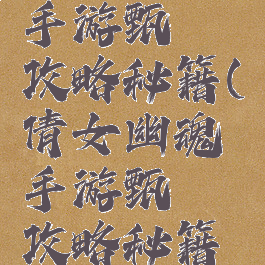 手游甄
攻略秘籍(
倩女幽魂
手游甄
攻略秘籍